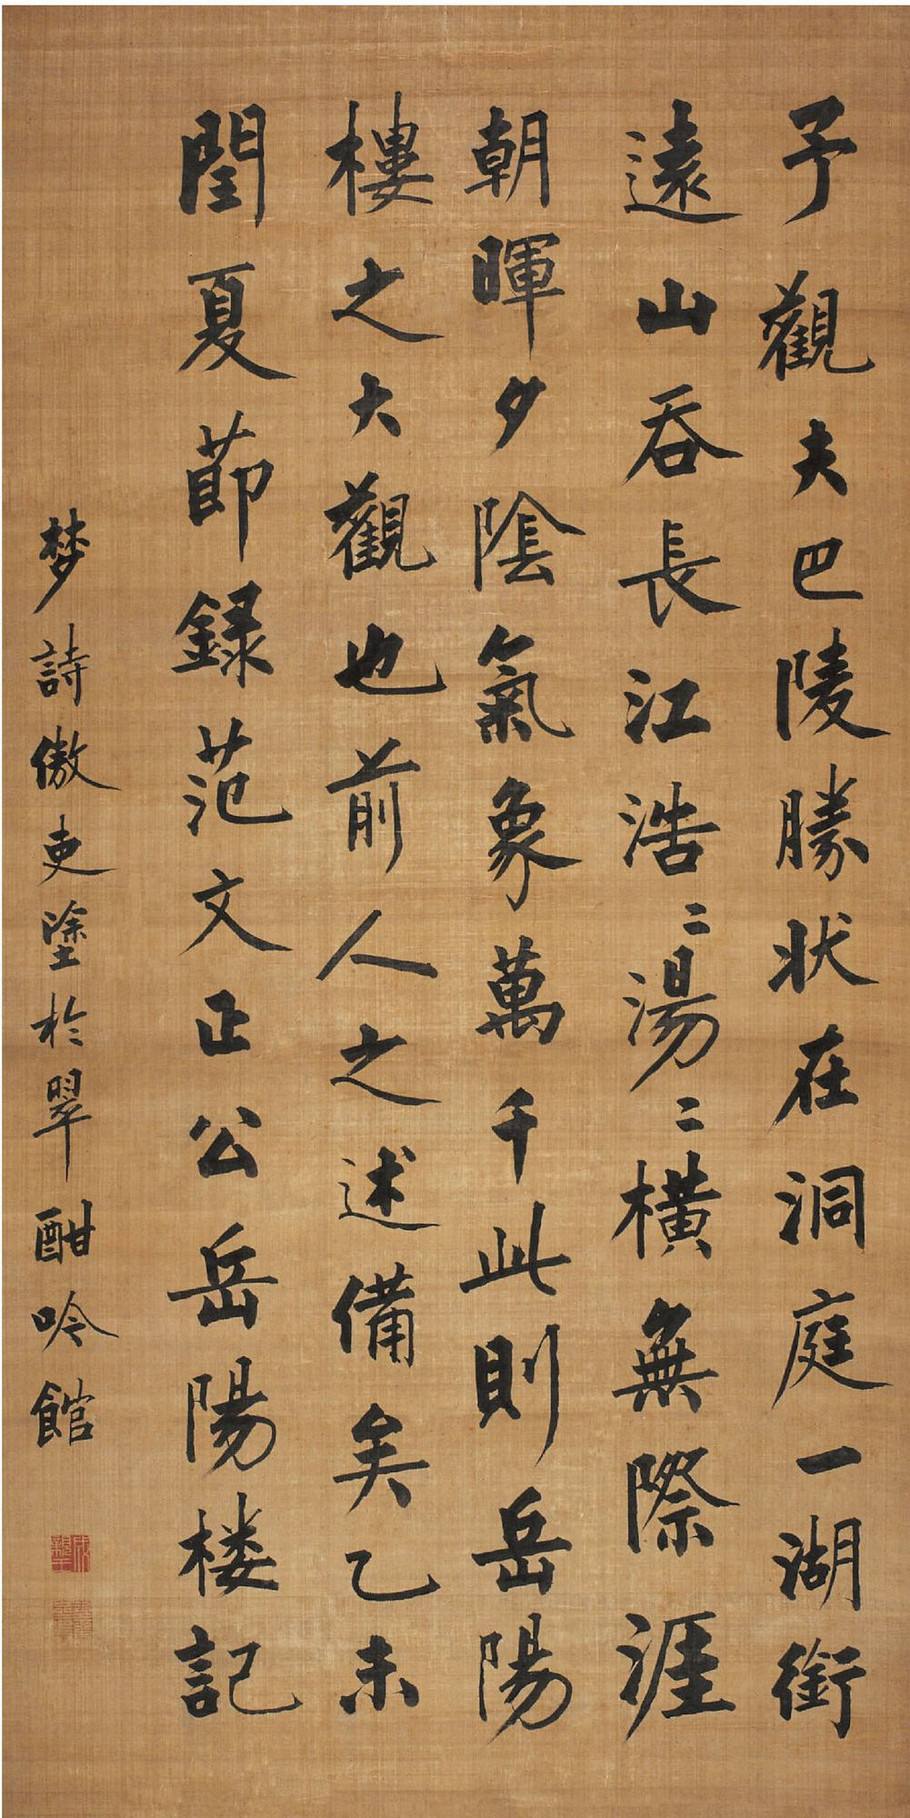 予觀夫巴陵勝状在洞庭一湖銜
遠山吞長江浩〻湯〻橫無際涯
朝暉夕陰氣象萬千此則岳陽
樓之大觀也前人之述備矣乙未
閏夏莭録范文正公岳陽楼記
梦詩傲吏塗於翠酣吟館